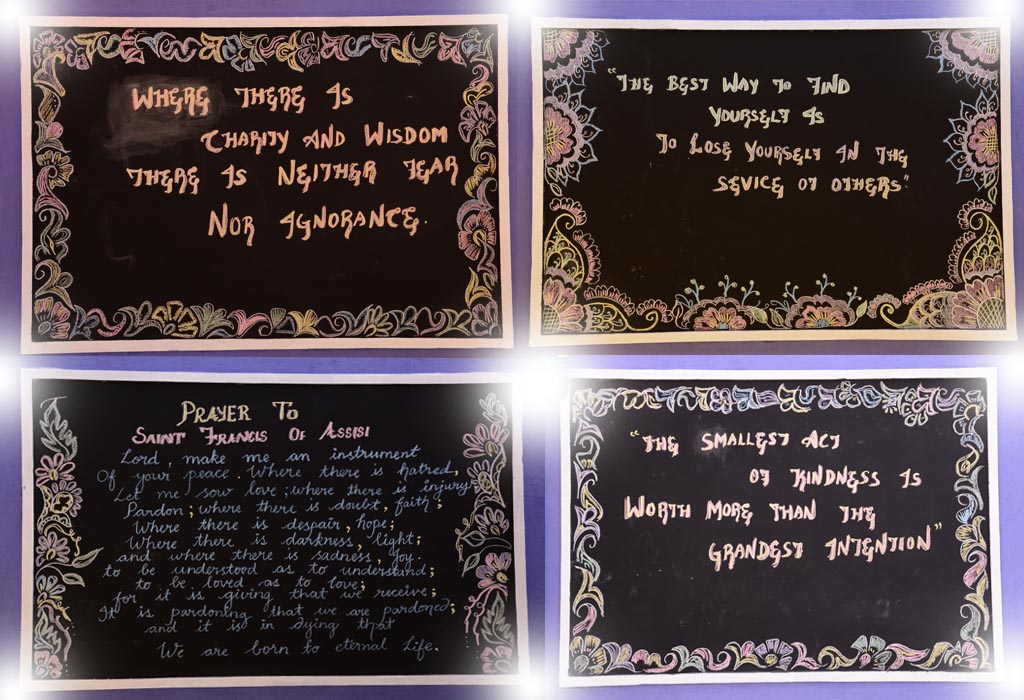 WHERE THERE IS
CHARITY AND WISDOM
THERE IS NEITHER FEAR
NOR IGNORANCE.
"THE BEST WAY TO FIND
YOURSELF IS
TO LOSE YOURSELF IN THE
SEVICE OF OTHERS"
PRAYER TO
SAINT FRANCIS OF ASSISI
Lord, make me an instrument
Of your peace. Where there is hatred,
Let me sow love; where there is injury
Pardon; where there is doubt, faith;
Where there is despair, hope;
Where there is darkness, light;
and where there is sadness, Joy.
to be understood as to understand;
to be loved as to love;
for it is giving that we receive;
It is pardoning that we are pardoned;
and it is in dying that
We are born to eternal Life.
"THE SMALLEST ACT
OF KINDNESS IS
WORTH MORE THAN THE
GRANDEST INTENTION"